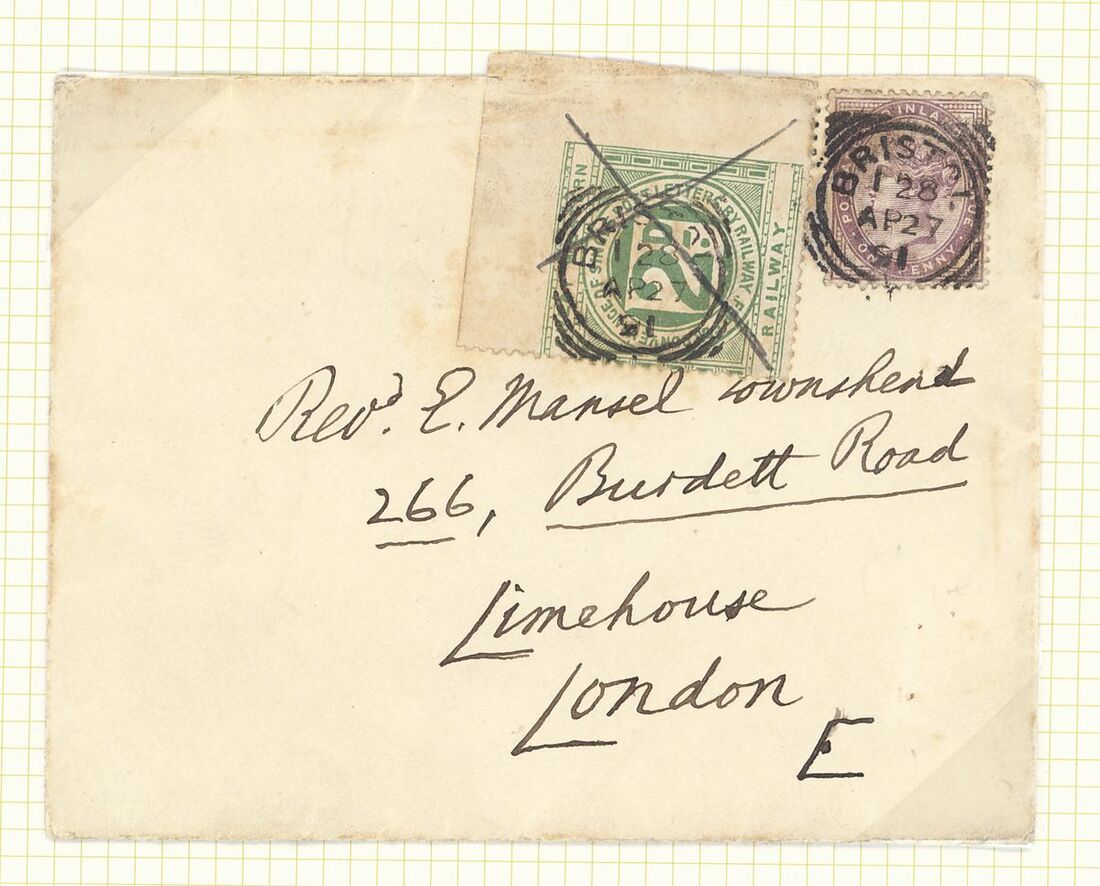 INLA
BRISTOL
1 28
AP27
91
PENNY
POST LETTERS BY RAILWAY
2D
RAILWAY
BRISTOL
1 28
AP27
91
Revd. E. Mansel Townshend
266, Burdett Road
Limehouse
London
E